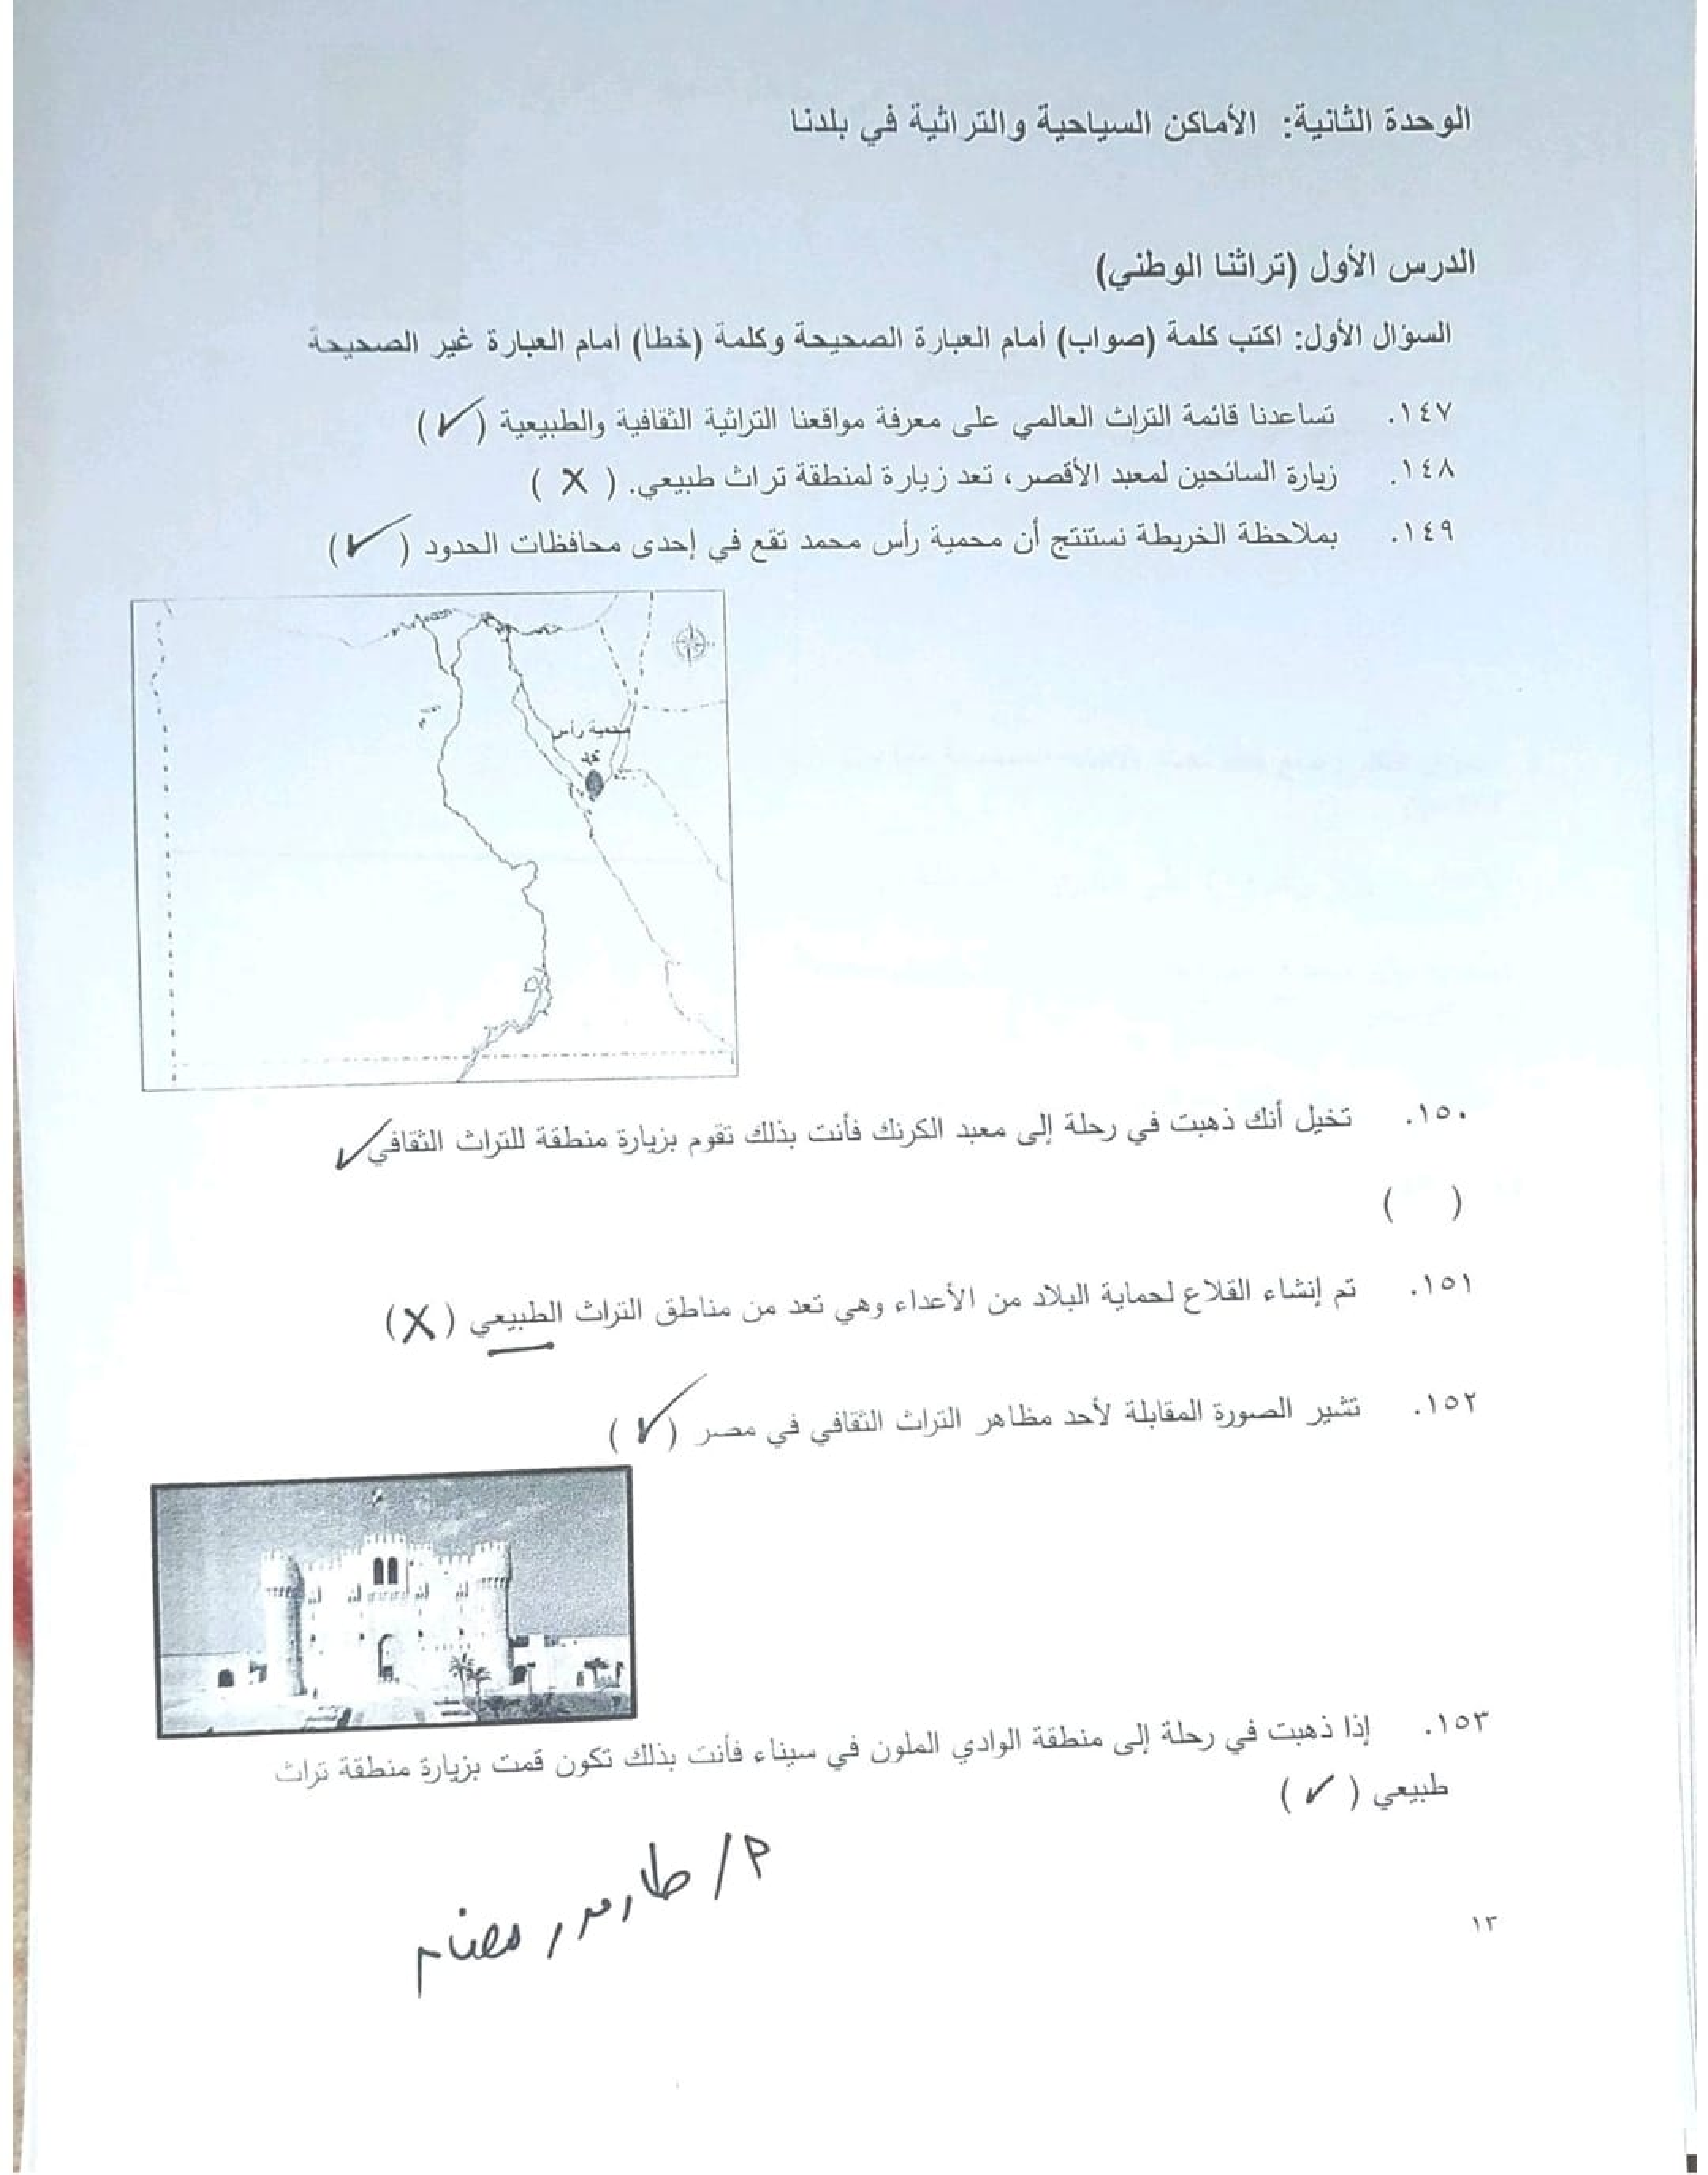 الوحدة الثانية: الأماكن السياحية والتراثية في بلدنا
الدرس الأول (تراثنا الوطني)
السؤال الأول: اكتب كلمة (صواب) أمام العبارة الصحيحة وكلمة (خطأ) أمام العبارة غير الصحيحة
١٤٧. تساعدنا قائمة التراث العالمي على معرفة مواقعنا التراثية الثقافية والطبيعية (✓)
١٤٨. زيارة السائحين لمعبد الأقصر، تعد زيارة لمنطقة تراث طبيعي. (X)
١٤٩. بملاحظة الخريطة نستنتج أن محمية رأس محمد تقع في إحدى محافظات الحدود (✓)
محمية رأس
محمد
١٥٠. تخيل أنك ذهبت في رحلة إلى معبد الكرنك فأنت بذلك تقوم بزيارة منطقة للتراث الثقافي ✓
( )
١٥١. تم إنشاء القلاع لحماية البلاد من الأعداء وهي تعد من مناطق التراث الطبيعي (X)
١٥٢. تشير الصورة المقابلة لأحد مظاهر التراث الثقافي في مصر (✓)
١٥٣. إذا ذهبت في رحلة إلى منطقة الوادي الملون في سيناء فأنت بذلك تكون قمت بزيارة منطقة تراث
طبيعي (✓)
م/
١٣